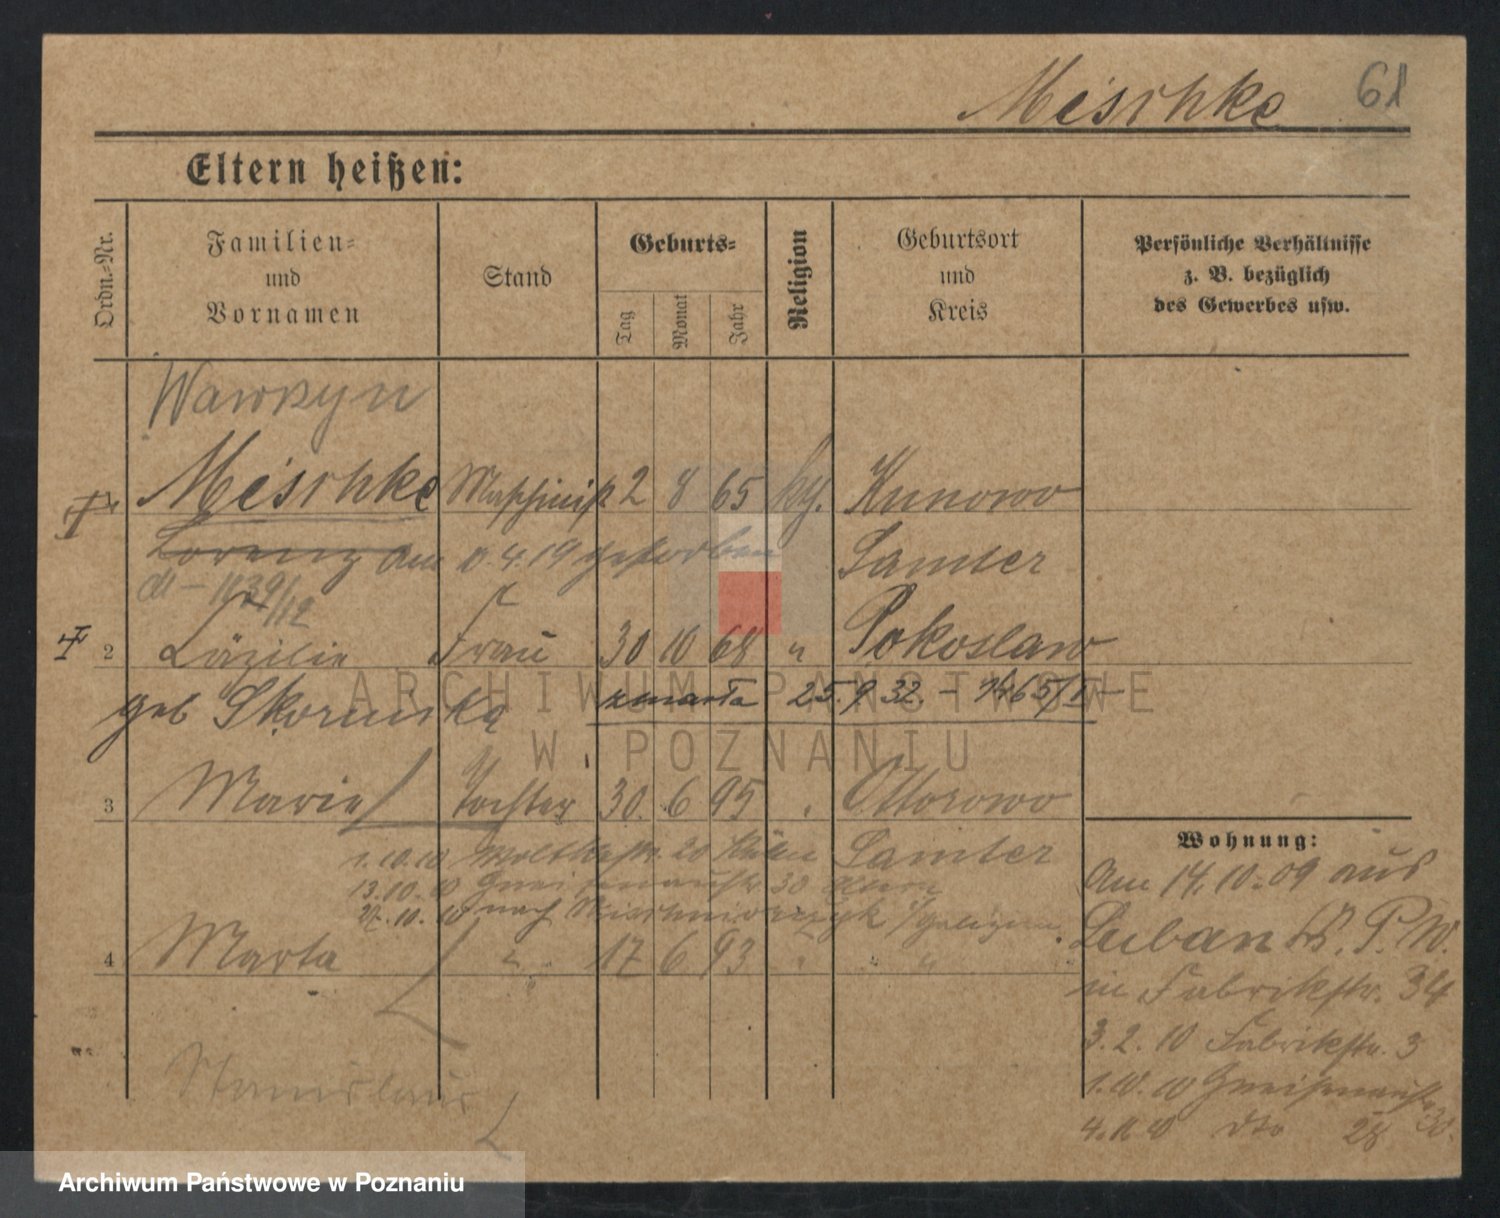 Mischke 61
Eltern heißen:
Ordn.-Nr.
Familien- und Vornamen
Stand
Geburts-
Tag
Monat
Jahr
Religion
Geburtsort und Kreis
Persönliche Verhältnisse z. B. bezüglich des Gewerbes usw.
Wawrzyn
Mischke Maschinist 2 8 65 kth. Kunowo
Lorenz am 4.19 gestorben Samter
2 Cäzilie Frau 30 10 68 " Pokoslaw
geb Skorunska zmarła 25.9.32.
3 Marie Tochter 30. 6 95 " Ottorowo
1.10.10 20 Samter
13.10.10 30
27.10.10 nach
4 Marta " 17 6 93 " " "
Stanislaus
Wohnung:
Am 14.10.09 aus
Luban Kr. P. W.
in Fabrikstr. 34
3.2.10 Fabrikstr. 3
1.10.10 Gneisenaustr. 30.
4.11.10 dto 28
ARCHIWUM PAŃSTWOWE
W POZNANIU
Archiwum Państwowe w Poznaniu